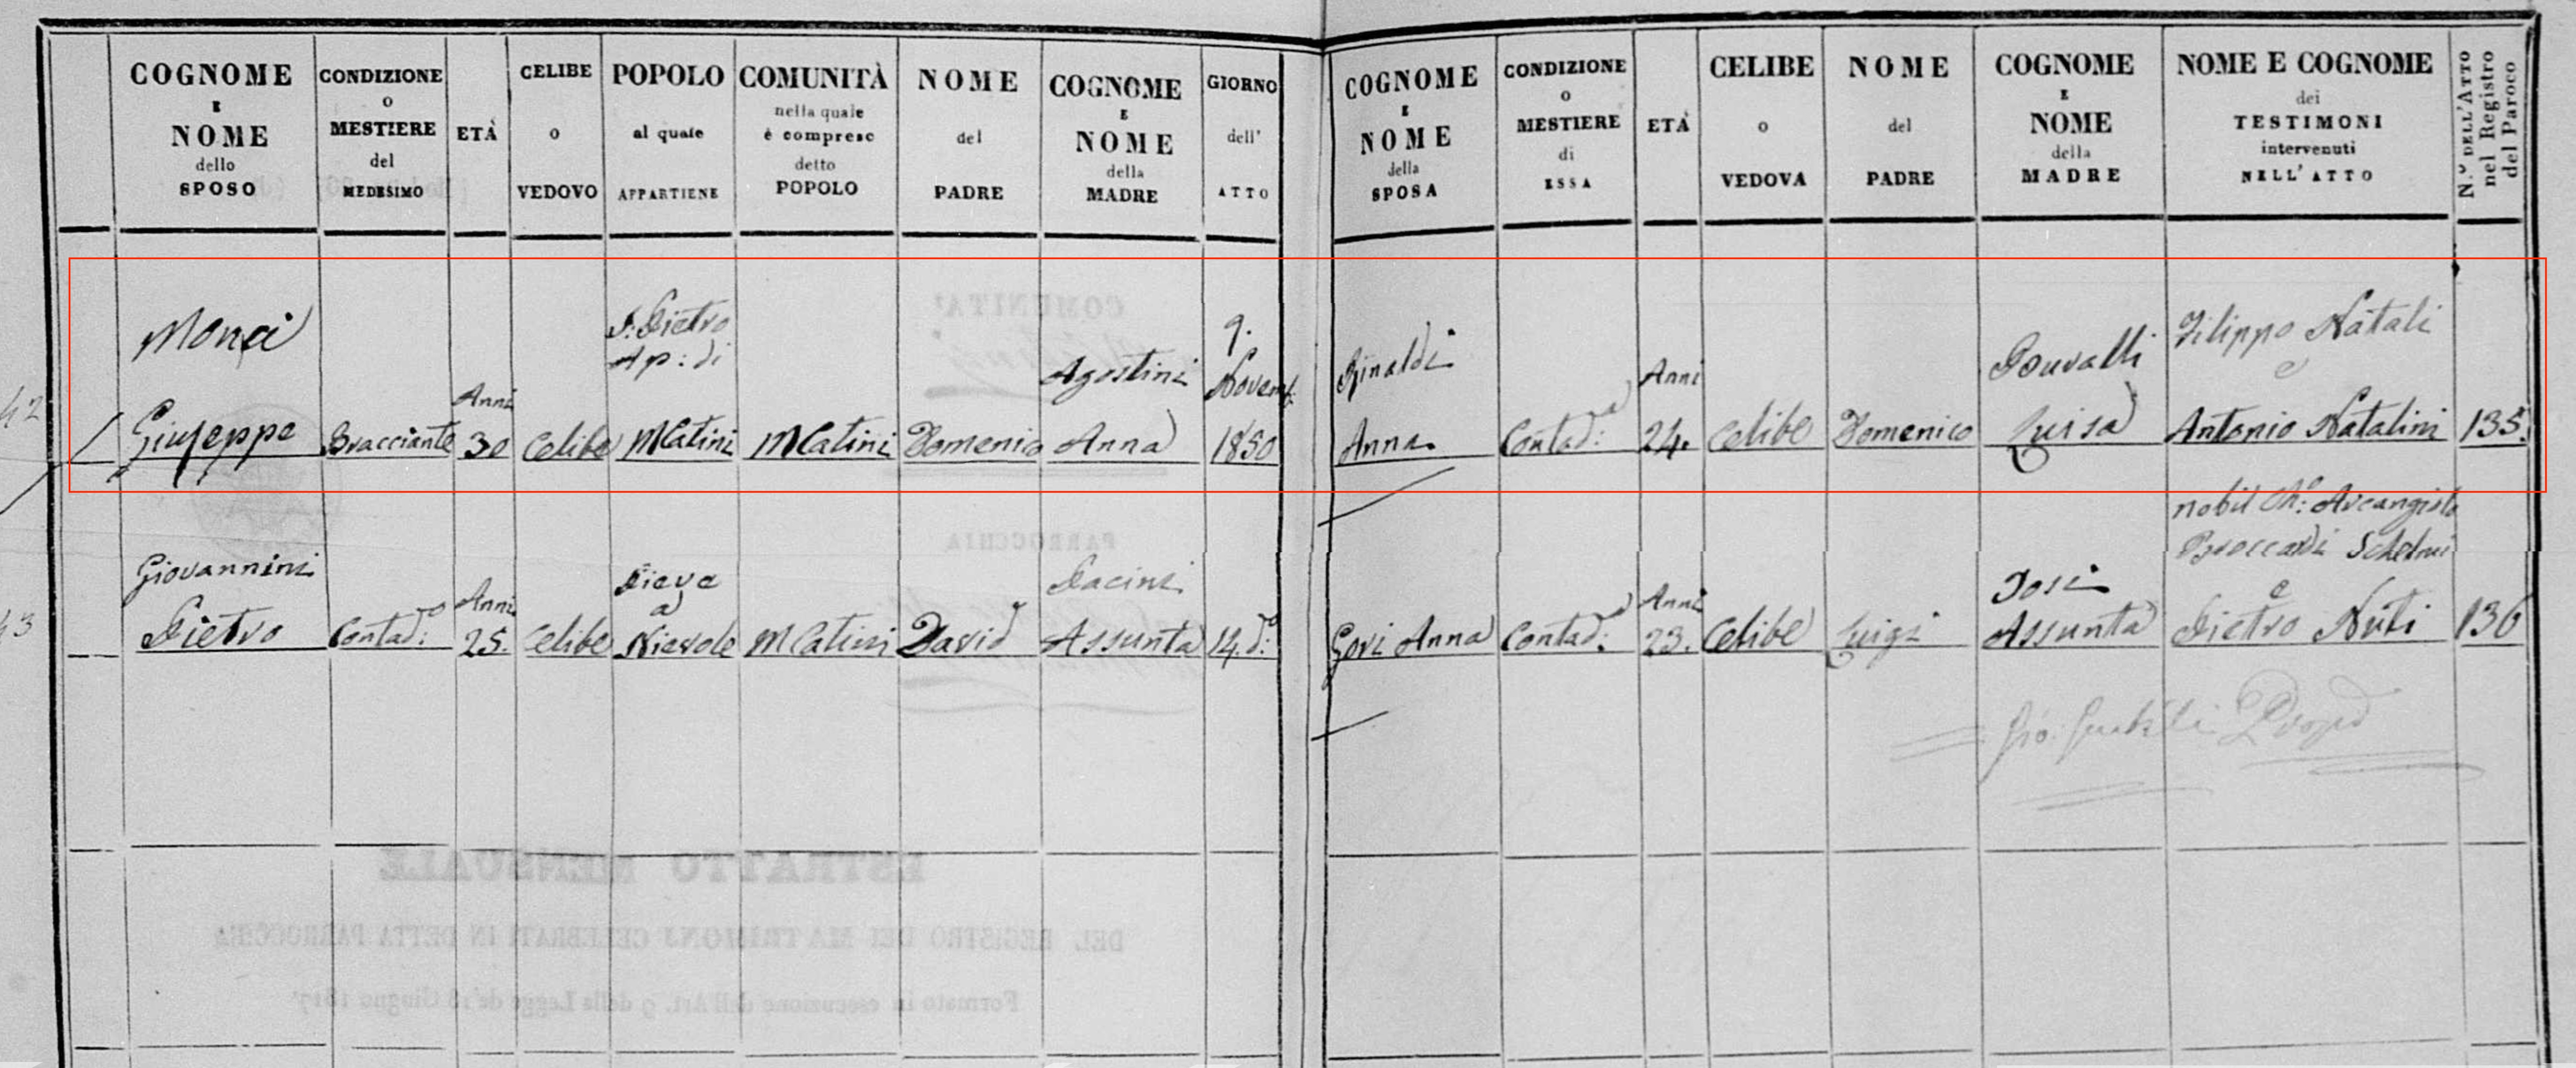 COGNOME
E
NOME
dello
SPOSO
CONDIZIONE
o
MESTIERE
del
MEDESIMO
ETÀ
CELIBE
o
VEDOVO
POPOLO
al quale
APPARTIENE
COMUNITÀ
nella quale
è compreso
detto
POPOLO
NOME
del
PADRE
COGNOME
E
NOME
della
MADRE
GIORNO
dell'
ATTO
COGNOME
E
NOME
della
SPOSA
CONDIZIONE
o
MESTIERE
di
ESSA
ETÀ
CELIBE
o
VEDOVA
NOME
del
PADRE
COGNOME
E
NOME
della
MADRE
NOME E COGNOME
dei
TESTIMONI
intervenuti
NELL'ATTO
N.º DELL'ATTO
nel Registro
del Paroco
42
Monci
Giuseppe
Bracciante
Anni
30
Celibe
S. Pietro
Ap: di
MCatini
MCatini
Domenico
Agostini
Anna
9.
Novemb.
1850
Rinaldi
Anna
Contad:
Anni
24.
Celibe
Domenico
Luisa
Filippo Natali
e
Antonio Natalini
135.
43
Giovannini
Pietro
Contad:
Anni
25.
Celibe
Pieve
a
Nievole
MCatini
David
Pacini
Assunta
14. d:
Gori Anna
Contad:
Anni
23.
Celibe
Luigi
Tosi
Assunta
nobil Arcangiolo
Broccardi Schelmi
e
Pietro Nuti
136
COMUNITA'
PARROCCHIA
ESTRATTO MENSUALE
DEL REGISTRO DEI MATRIMONJ CELEBRATI IN DETTA PARROCCHIA
Formato in esecuzione dell'Art. 9 della Legge de' 18 Giugno 1817